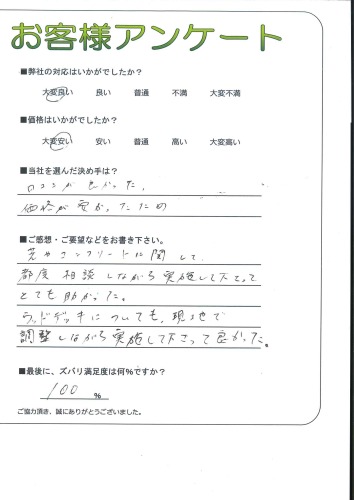 お客様アンケート
■弊社の対応はいかがでしたか?
大変良い 良い 普通 不満 大変不満
■価格はいかがでしたか?
大変安い 安い 普通 高い 大変高い
■当社を選んだ決め手は?
口コミが良かった。
価格が安かったため
■ご感想・ご要望などをお書き下さい。
コンクリートに関して、
都度相談しながら実施して下さって
とても助かった。
ウッドデッキについても、現地で
調整しながら実施して下さって良かった。
■最後に、ズバリ満足度は何%ですか?
100 %
ご協力頂き、誠にありがとうございました。